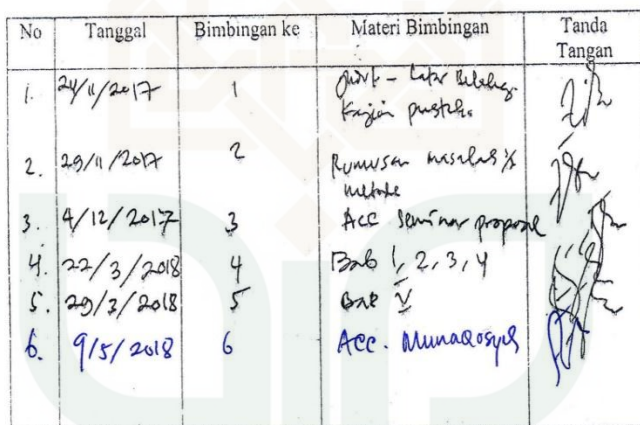 No Tanggal Bimbingan ke Materi Bimbingan Tanda Tangan
1. 24/11/2017 1 - Latar Belakang
Kajian pustaka
2. 29/11/2017 2 Rumusan masalah
metode
3. 4/12/2017 3 Acc Seminar proposal
4. 22/3/2018 4 Bab 1, 2, 3, 4
5. 29/3/2018 5 Bab V
6. 9/5/2018 6 Acc. Munaqosyah